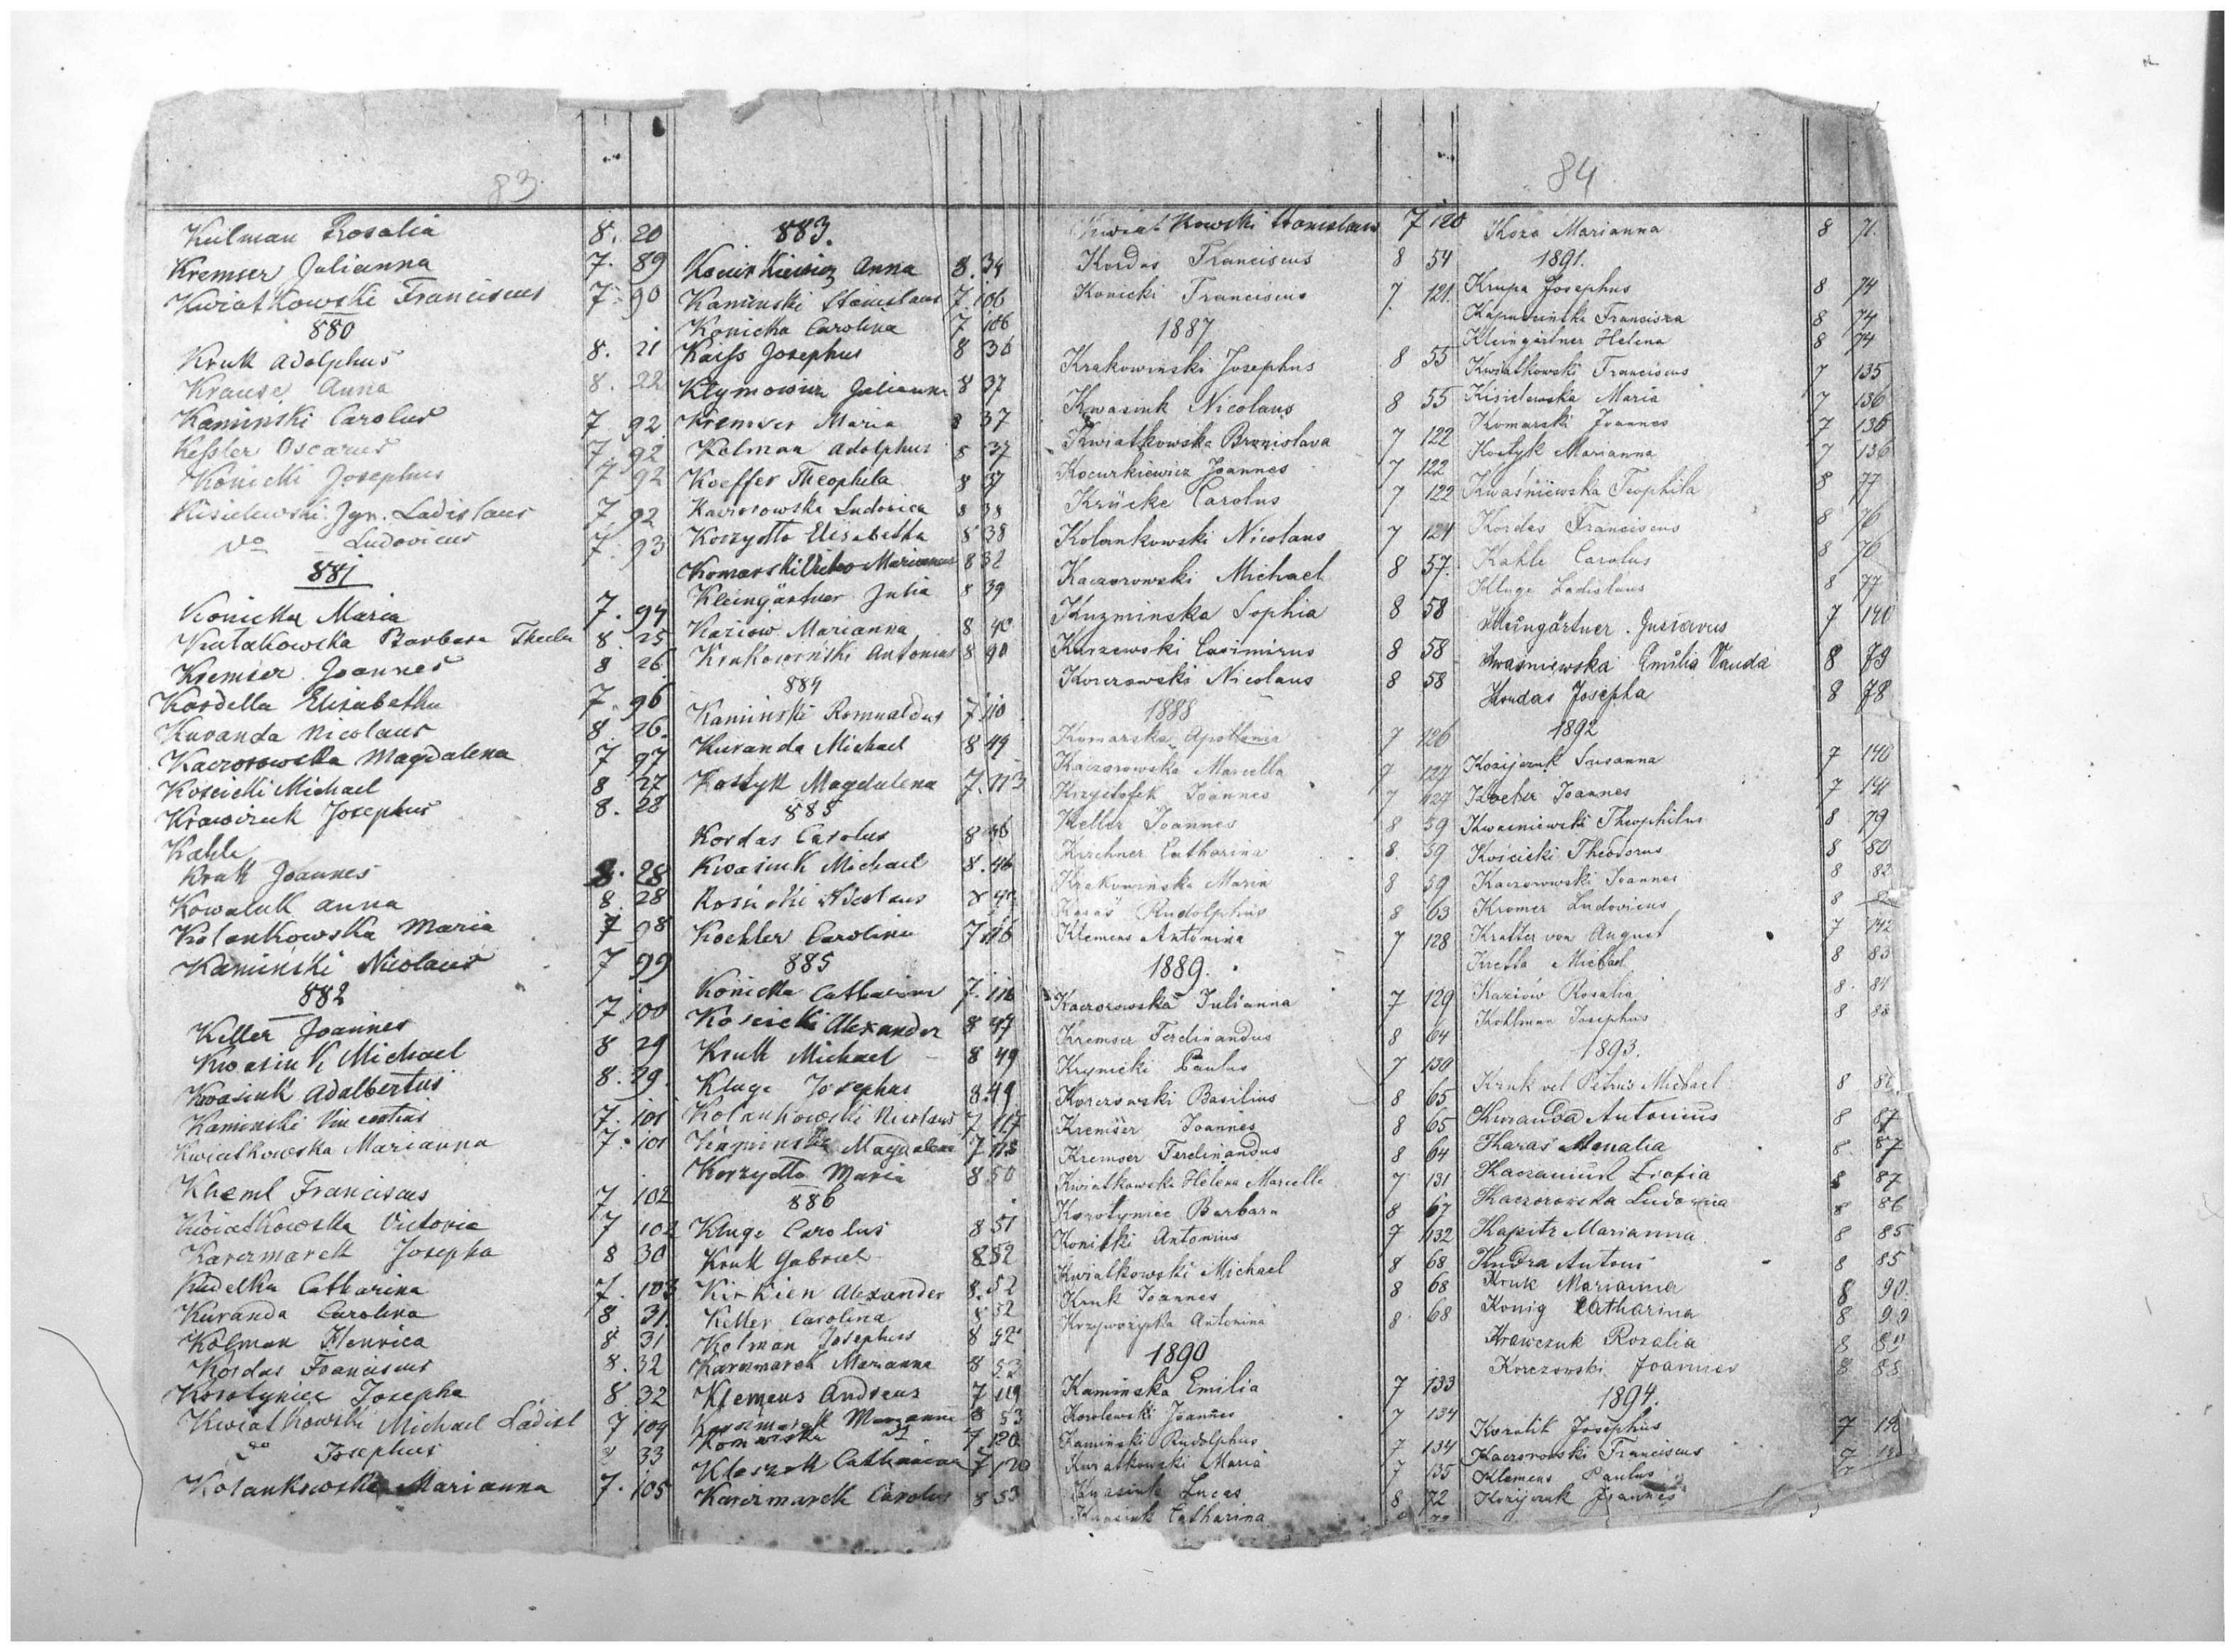 83.
Kulman Rosalia 8. 20
Kremser Julianna 7. 89
Kwiatkowski Franciscus 7. 90
880
Kruk Adolphus 8. 21
Krause Anna 8. 22
Kaminski Carolus 7 92
Keßler Oscarus 7. 92
Konicki Josephus 7 92
Kisielewski Ladislaus 7 92
do Ludovicus 7. 93
881
Konicka Maria 7. 94
Barbara Thecla 8. 25
Kremser Joannes 8 26
Kordella Elisabetha 7. 96
Kuranda Nicolaus 8 26.
Kaczorowska Magdalena 7 97
Koscicki Michael 8 27
Krawczuk Josephus 8. 28
Kahle
Kruk Joannes 8. 28
Kowaluk Anna 8. 28
Kolankowska Maria 7 98
Kaminski Nicolaus 7 99
882
Keller Joannes 7. 100
Kwasiuk Michael 8 29
Kwasiuk Adalbertus 8. 29.
Kaminski Vincentius 7. 101
Kwiatkowska Marianna 7. 101
Kheml Franciscus 7 102
Kwiatkowska Victoria 7 102
Karczmarek Josepha 8 30
Kudelka Catharina 7. 103
Kuranda Carolina 8 31.
Kolman Henrica 8 31
Kordas Franciscus 8. 32
Korotyniec Josepha 8. 32
Kwiatkowski Michael Ladisl 7 104
do Josephus 8 33
Kolankowska Marianna 7. 105
883.
Kocurkiewicz Anna 8. 34
Kaminski Stanislaus 7. 106
Konicka Carolina 7 106
Kaiß Josephus 8 36
Klymowicz Julianna 8 37
Kremser Maria 8 37
Kolman Adolphus 8 37
Koeffer Theophila 8 37
Kaczorowska Ludovica 8 38
Korzydlo Elisabetha 8 38
Komarski Marianus 8 32
Kleingärtner Julia 8 39
Kaziow Marianna 8 40
Krakowinski Antonius 8 40
884
Kaminski Romualdus 7. 110
Kuranda Michael 8 44
Kostyk Magdalena 7. 113
885
Kordas Carolus 8 46
Kwasiuk Michael 8. 46
Koehler Carolina 7. 116
885
Konicka Catharina 7. 116
Koscicki Alexander 8 47
Kruk Michael 8 49
Kluge Josephus 8. 49
Kolankowski Nicolaus 7 117
Kaminska Magdalena 7. 118
Korzydlo Maria 8 50
886
Kluge Carolus 8 51
Kruk Gabriel 8 52
Kirkien Alexander 8. 52
Keller Carolina 8 52
Kolman Josephus 8 52
Karczmarek Marianna 8 53
Klemens Andreas 7 119
Karczmarek Marianna 8 53
7 120
Catharina 7. 120
Karczmarek Carolus 8 53
Kwiatkowski Stanislaus 7 120
Kordas Franciscus 8 54
Konicki Franciscus 7. 121.
1887
Krakowinski Josephus 8 55
Kwasiuk Nicolaus 8 55
Kwiatkowska Bronislava 7 122
Kocurkiewicz Joannes 7 122
Krücke Carolus 7 122
Kolankowski Nicolaus 7 124
Kaczorowski Michael 8 57.
Kuzminska Sophia 8 58
Kurzewski Casimirus 8 58
Korczowski Nicolaus 8 58
1888
Komarska Apollonia 7 126
Kaczorowska Marcella 7 127
Krzysztofek Joannes 7 127
Keller Joannes 8 59
Kirchner Catharina 8. 59
Krakowinska Maria 8 59
Karaś Rudolphus 8 63
Klemens Antonina 7 128
1889.
Kaczorowska Julianna 7 129
Kremser Ferdinandus 8 64
Krynicki Paulus 7 130
Korczowski Basilius 8 65
Kremser Joannes 8 65
Kremser Ferdinandus 8 64
Kwiatkowska Helena Marcella 7 131
Korotyniec Barbara 8 67
Konicki Antonius 7 132
Kwiatkowski Michael 8 68
Kruk Joannes 8 68
Antonina 8. 68
1890
Kaminska Emilia 7 133
Korolewski Joannes 7 134
Kaminski Rudolphus 7 134
Kwiatkowski Maria 7 135
Kwasiuk Lucas 8 72
Kwasiuk Catharina
84.
Koza Marianna 8 71.
1891.
Krupa Josephus 8 74
Francisca 8 74
Kleingärtner Helena 8 74
Kwiatkowski Franciscus 7 135
Kisielewska Maria 7 136
Komarski Joannes 7 136
Kostyk Marianna 7 136
Kwaśniewska Teophila 8 77
Kordas Franciscus 8 76
Kahle Carolus 8 76
Kluge Ladislaus 8 77
Kleingärtner Gustavus 7 140
Kwasniewska Emilia Vanda 8 79
Kordas Josepha 8 78
1892
Kozijczuk Susanna 7 140
Joannes 7 141
Kwasniewski Theophilus 8 79
Kościcki Theodorus 8 80
Kaczorowski Joannes 8 82
Kromer Ludovicus 8
Kratter von August 7 142
Michael 8 83
Kaziów Rosalia 8. 84
Kohlman Josephus 8 88
1893.
Kruk vel Petrus Michael 8
Kuranda Antonius 8 87
Karaś Amalia 8. 87
Zofia 8 87
Kaczorowska Ludovica 8 86
Kapitz Marianna 8 85
Kudra Anton 8 85
Kruk Marianna 8 90.
Konig Catharina 8 90
Krawczuk Rozalia 8 89
Korczowski Joannes 8 88
1894.
Koralik Josephus 7
Kaczorowski Franciscus
Klemens Paulus
Kozijczuk Joannes